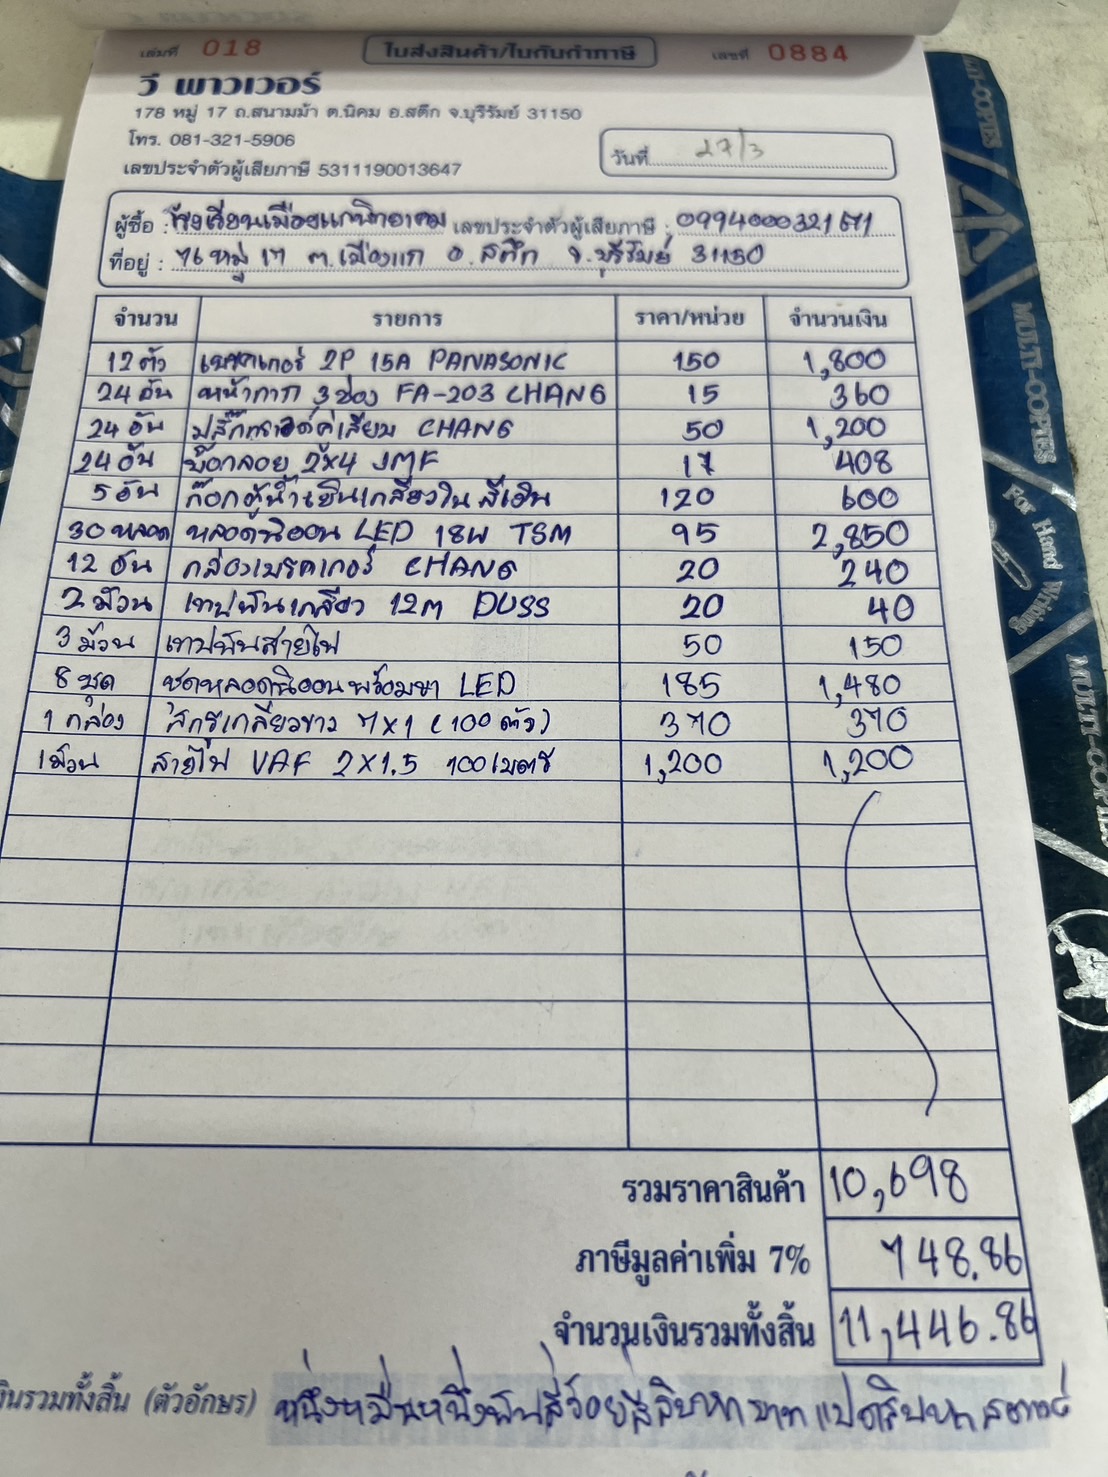 เล่มที่ 018 ใบส่งสินค้า/ใบกำกับภาษี เลขที่ 0884
วี พาวเวอร์
178 หมู่ 17 ถ.สนามม้า ต.นิคม อ.สตึก จ.บุรีรัมย์ 31150
โทร. 081-321-5906
เลขประจำตัวผู้เสียภาษี 5311190013647
วันที่ 27/3
ผู้ซื้อ : โรงเรียนเมืองแกพิทยาคม เลขประจำตัวผู้เสียภาษี :
ที่อยู่ : 76 หมู่ 17 ต.เมืองแก อ.สตึก จ.บุรีรัมย์ 31150
จำนวน รายการ ราคา/หน่วย จำนวนเงิน
12 ตัว เบรคเกอร์ 2P 15A PANASONIC 150 1,800
24 อัน หน้ากาก 3 ช่อง FA-203 CHANG 15 360
24 อัน ปลั๊กกราวด์คู่เสียบ CHANG 50 1,200
24 อัน บ๊อกลอย 2x4 JMF 17 408
5 อัน ก๊อกตู้น้ำเย็นเกลียวใน สีเงิน 120 600
30 หลอด หลอดนีออน LED 18W TSM 95 2,850
12 อัน กล่องเบรคเกอร์ CHANG 20 240
2 ม้วน เทปพันเกลียว 12m DUSS 20 40
3 ม้วน เทปพันสายไฟ 50 150
8 ชุด ชุดหลอดนีออนพร้อมขา LED 185 1,480
1 กล่อง สกรูเกลียวขาว 7x1 (100 ตัว) 370 370
1 ม้วน สายไฟ VAF 2x1.5 100 เมตร 1,200 1,200
รวมราคาสินค้า 10,698
ภาษีมูลค่าเพิ่ม 7% 748.86
จำนวนเงินรวมทั้งสิ้น 11,446.86
เงินรวมทั้งสิ้น (ตัวอักษร) หนึ่งหมื่นหนึ่งพันสี่ร้อยสี่สิบหกบาทแปดสิบหกสตางค์
MULTI-COPIES
For Hand Writing
MULTI-COPIES